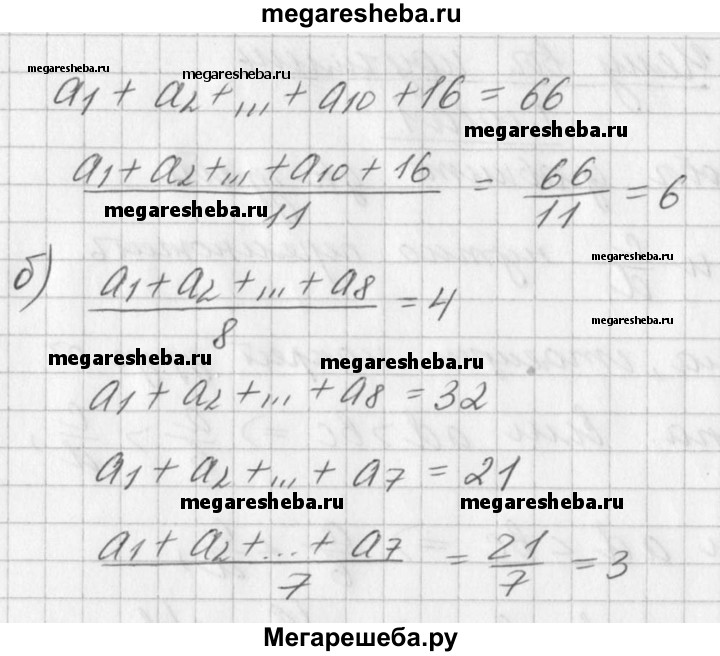 megaresheba.ru
megaresheba.ru megaresheba.ru
a1 + a2 + ... + a10 + 16 = 66
megaresheba.ru
(a1 + a2 + ... + a10 + 16)/11 = 66/11 = 6
megaresheba.ru
megaresheba.ru
б) (a1 + a2 + ... + a8)/8 = 4
megaresheba.ru
megaresheba.ru megaresheba.ru
a1 + a2 + ... + a8 = 32
a1 + a2 + ... + a7 = 21
megaresheba.ru megaresheba.ru
(a1 + a2 + ... + a7)/7 = 21/7 = 3
Мегарешеба.ру